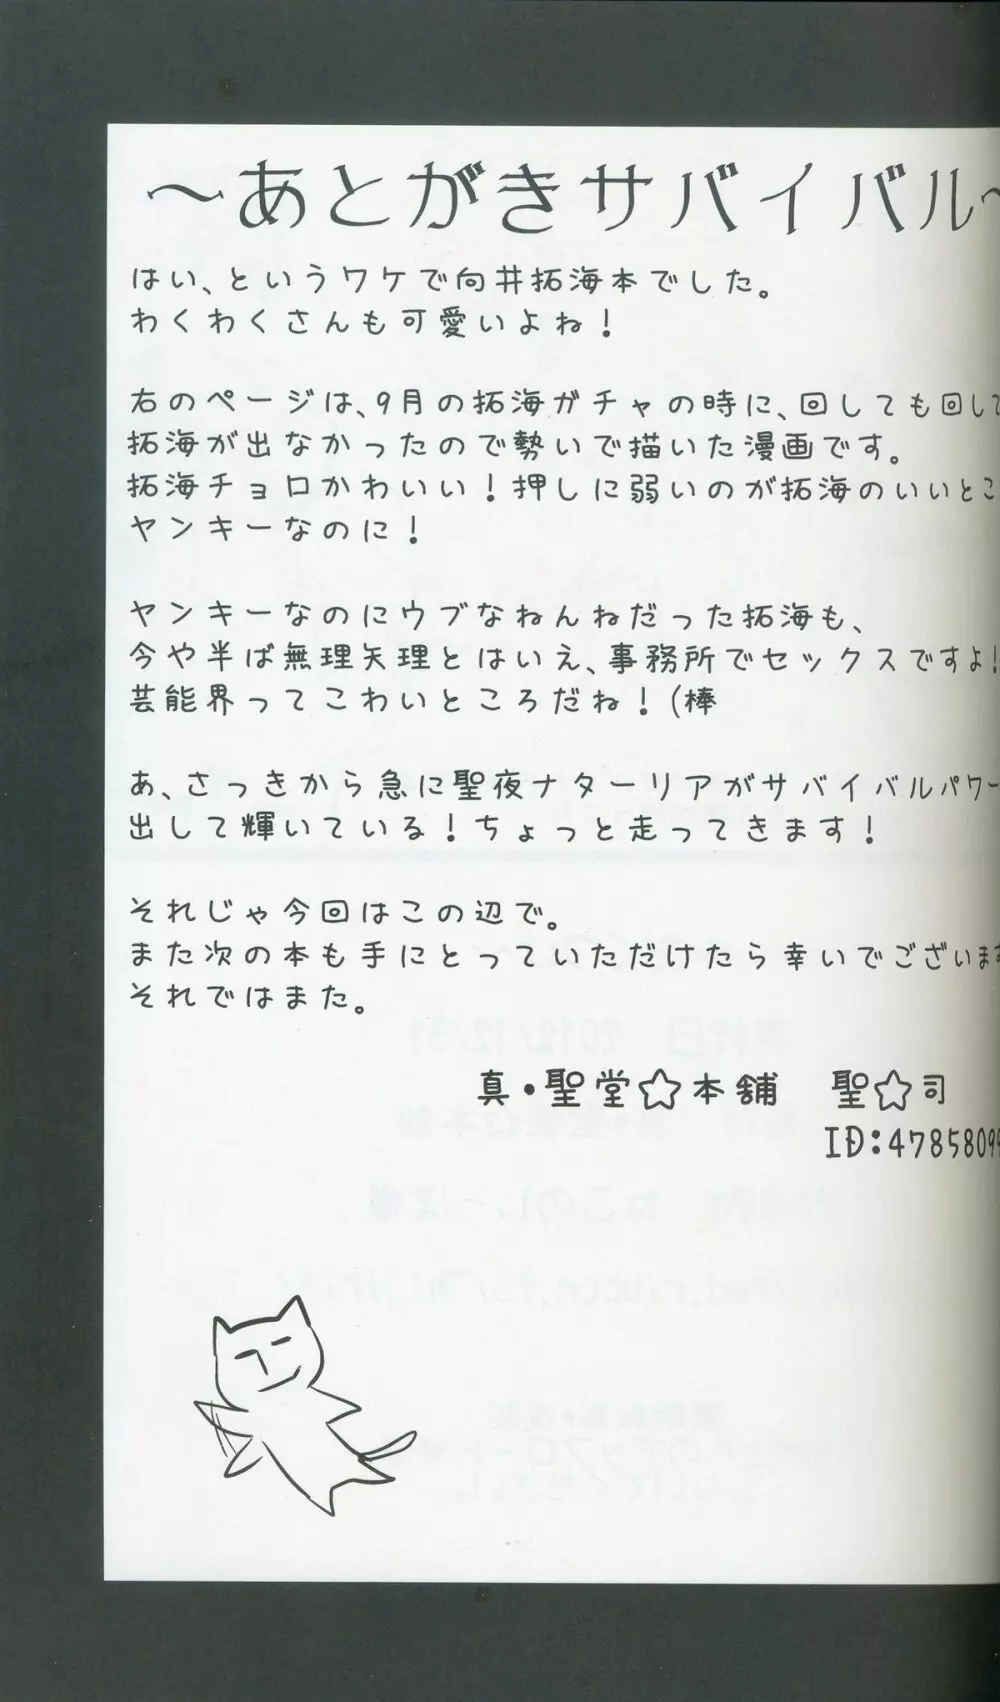 ～あとがきサバイバル～
はい、というワケで向井拓海本でした。
わくわくさんも可愛いよね！
右のページは、9月の拓海ガチャの時に、回しても回して
拓海が出なかったので勢いで描いた漫画です。
拓海チョロかわいい！押しに弱いのが拓海のいいとこ
ヤンキーなのに！
ヤンキーなのにウブなねんねだった拓海も、
今や半ば無理矢理とはいえ、事務所でセックスですよ！
芸能界ってこわいところだね！(棒
あ、さっきから急に聖夜ナターリアがサバイバルパワー
出して輝いている！ちょっと走ってきます！
それじゃ今回はこの辺で。
また次の本も手にとっていただけたら幸いでございます
それではまた。
真・聖堂☆本舗　聖☆司
ID:47858099